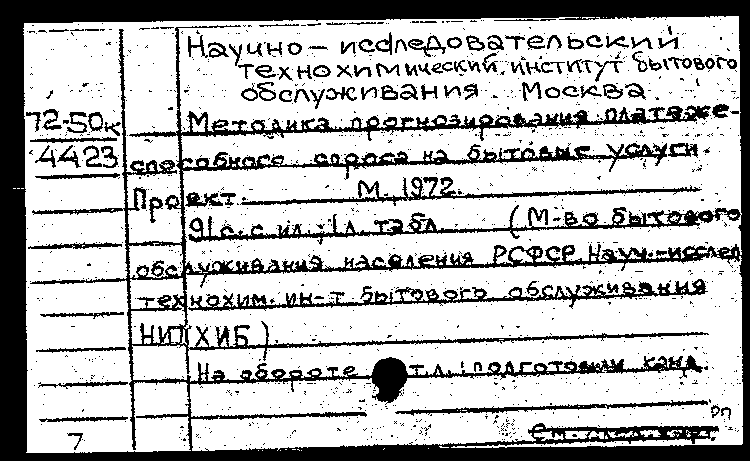 Научно – исследовательский
технохимический институт бытового
обслуживания. Москва
72-50к
4423
Методика прогнозирования платеже-
способного спроса на бытовые услуги.
Проект. М., 1972.
91 с. с ил.; 1 л. табл. (М-во бытового
обслуживания населения РСФСР. Науч.-исслед
технохим. ин-т бытового обслуживания
НИТХИБ)
На обороте т.л.: подготовили канд.
См. след. карт
7